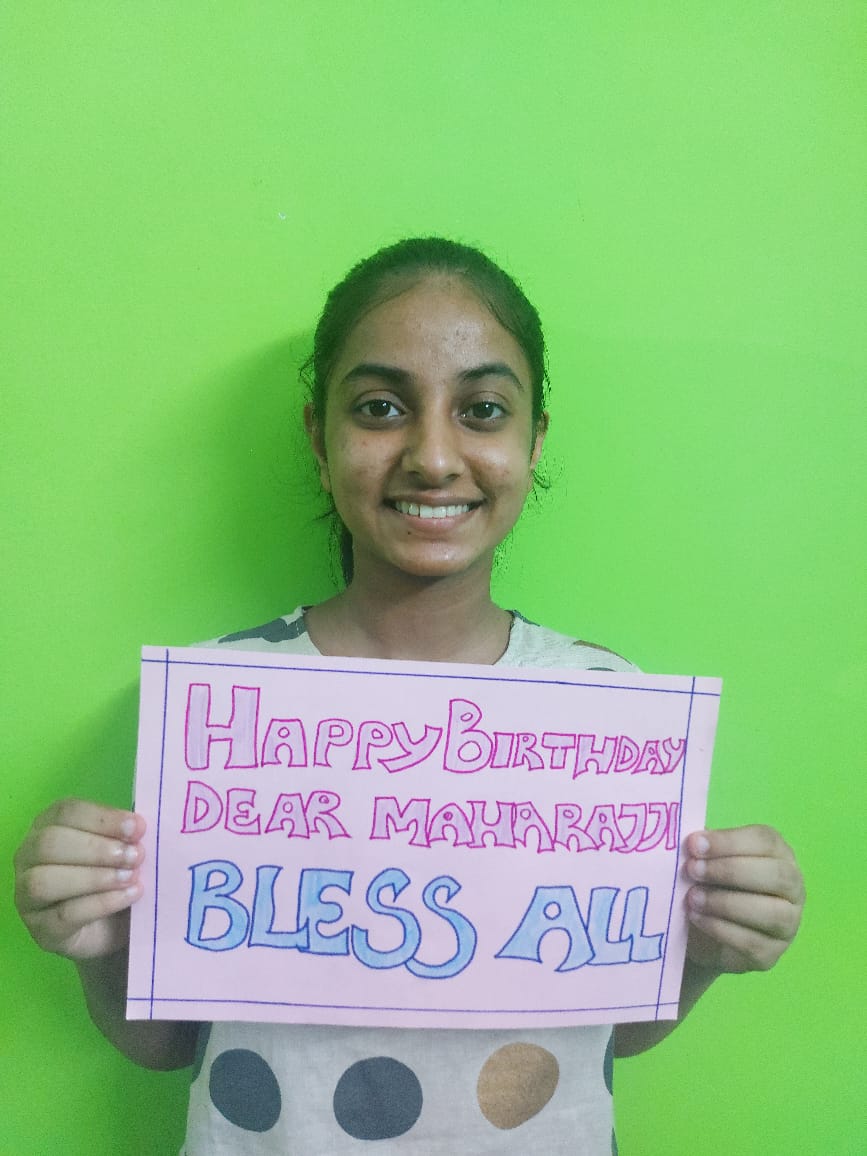 HAPPY BIRTHDAY
DEAR MAHARAJJI
BLESS ALL